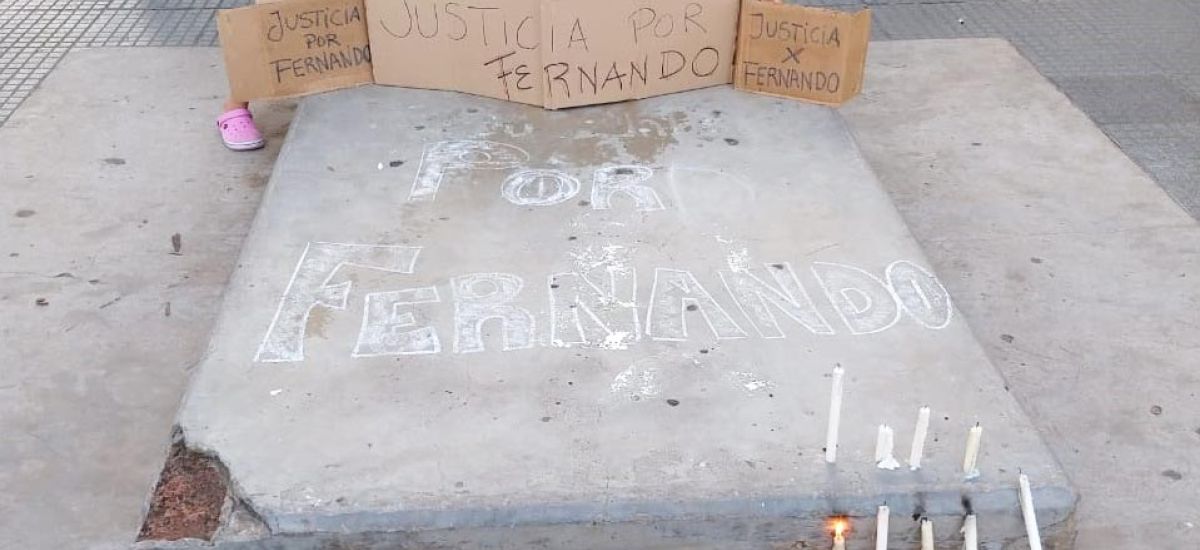 JUSTICIA
POR
FERNANDO
JUSTICIA POR
FERNANDO
JUSTICIA
X
FERNANDO
POR
FERNANDO